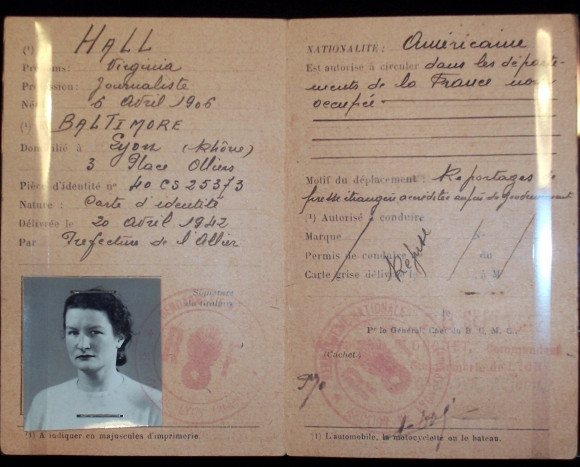 (¹) HALL
Prénoms: Virginia
Profession: Journaliste
Né 6 Avril 1906
(¹) BALTIMORE
Domicilié à Lyon (Rhône)
3 Place Ollier
Pièce d'identité n° 40 CS 25373
Nature: Carte d'identité
Délivrée le 20 Avril 1942
Par Préfecture de l'Allier
Signature
du titulaire
(1) A indiquer en majuscules d'imprimerie.
NATIONALITÉ: Américaine
Est autorisé à circuler dans les départe-
ments de la France non
occupée
Motif du déplacement: Reportages de
presse étrangère accréditée auprès du Gouvernement
(¹) Autorisé à conduire
Marque N°
Permis de conduire du
Carte grise
Refusé
Pr le Général,
(Cachet)
(1) L'automobile, la motocyclette ou le bateau.